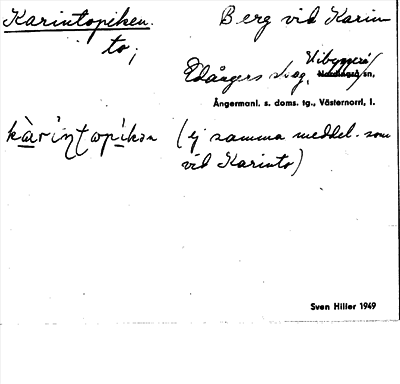 Karintopiken. Berg vid Karin
to;
Edångers s:og, Vibyggerå
Nordingrå sn,
Ångermanl. s. doms. tg., Västernorrl. l.
kàri̇ṇtopi̇kən (ej samma meddel. som
vid Karinto)
Sven Hiller 1949